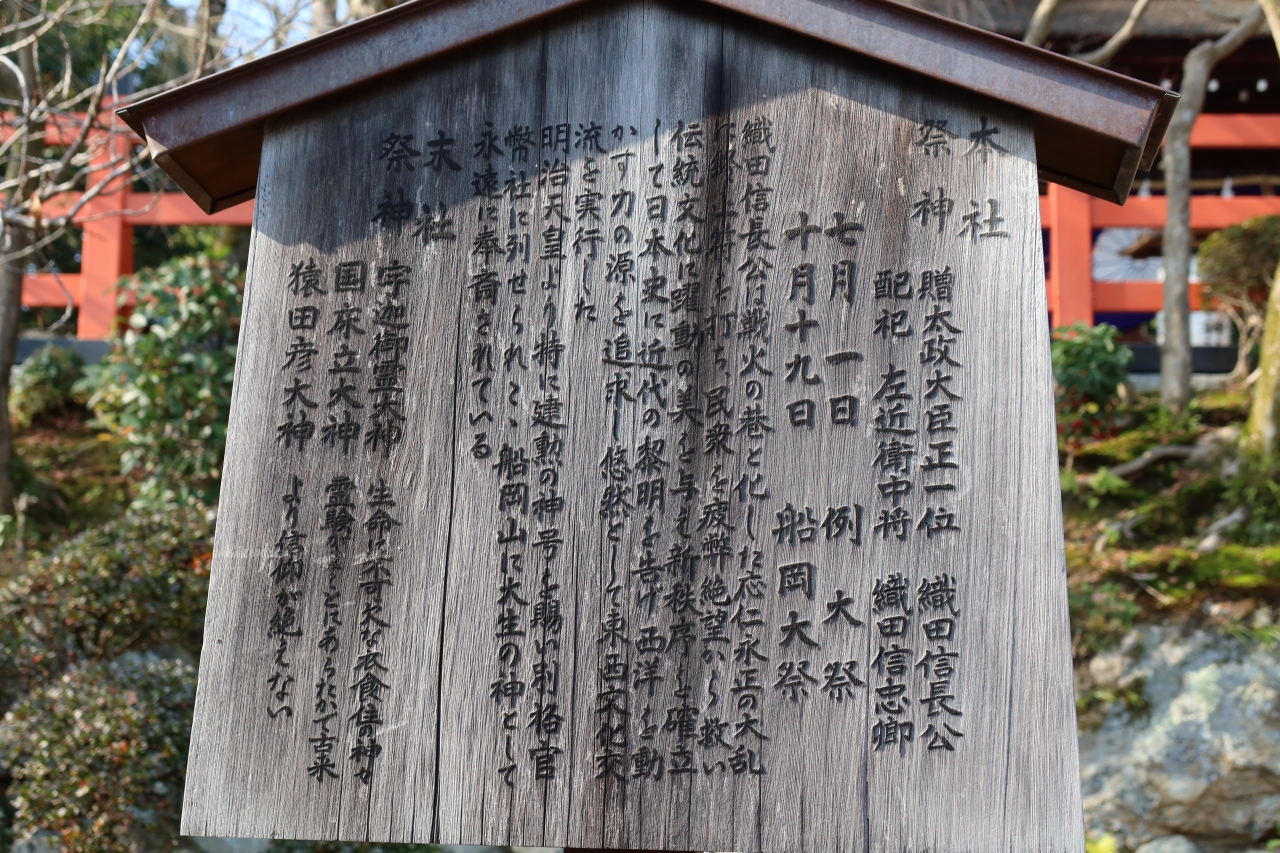 本社
祭神
贈太政大臣正一位 織田信長公
配祀 左近衛中将 織田信忠卿
七月 一日 例大祭
十月十九日 船岡大祭
織田信長公は戦火の巷と化した応仁永正の大乱
に終止符を打ち、民衆を疲弊絶望から救い
伝統文化に躍動の美を与え新秩序を確立
して日本史に近代の黎明を告げ 西洋を動
かす力の源を追求し悠然として東西文化交
流を実行した
明治天皇より特に建勲の神号を賜い別格官
幣社に列せられ 船岡山に大生の神として
永遠に奉斎されている
末社
祭神
宇迦御霊大神 生命に不可欠な衣食住の神
国床立大神 霊験 ことにあらたかで古来
猿田彦大神 より信仰が絶えない